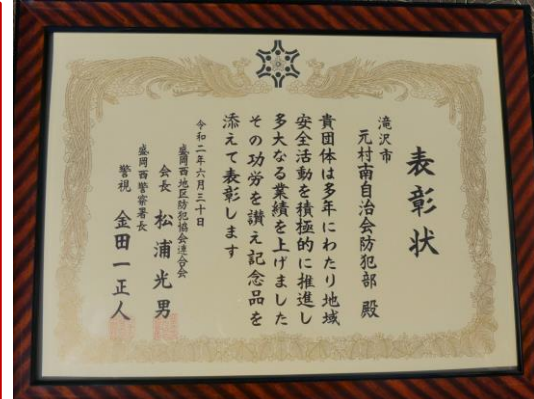 表彰状
滝沢市
元村南自治会防犯部 殿
貴団体は多年にわたり地域
安全活動を積極的に推進し
多大なる業績を上げました
その功労を讃え記念品を
添えて表彰します
令和二年六月三十日
盛岡西地区防犯協会連合会
会長 松浦光男
盛岡西警察署長
警視 金田一正人